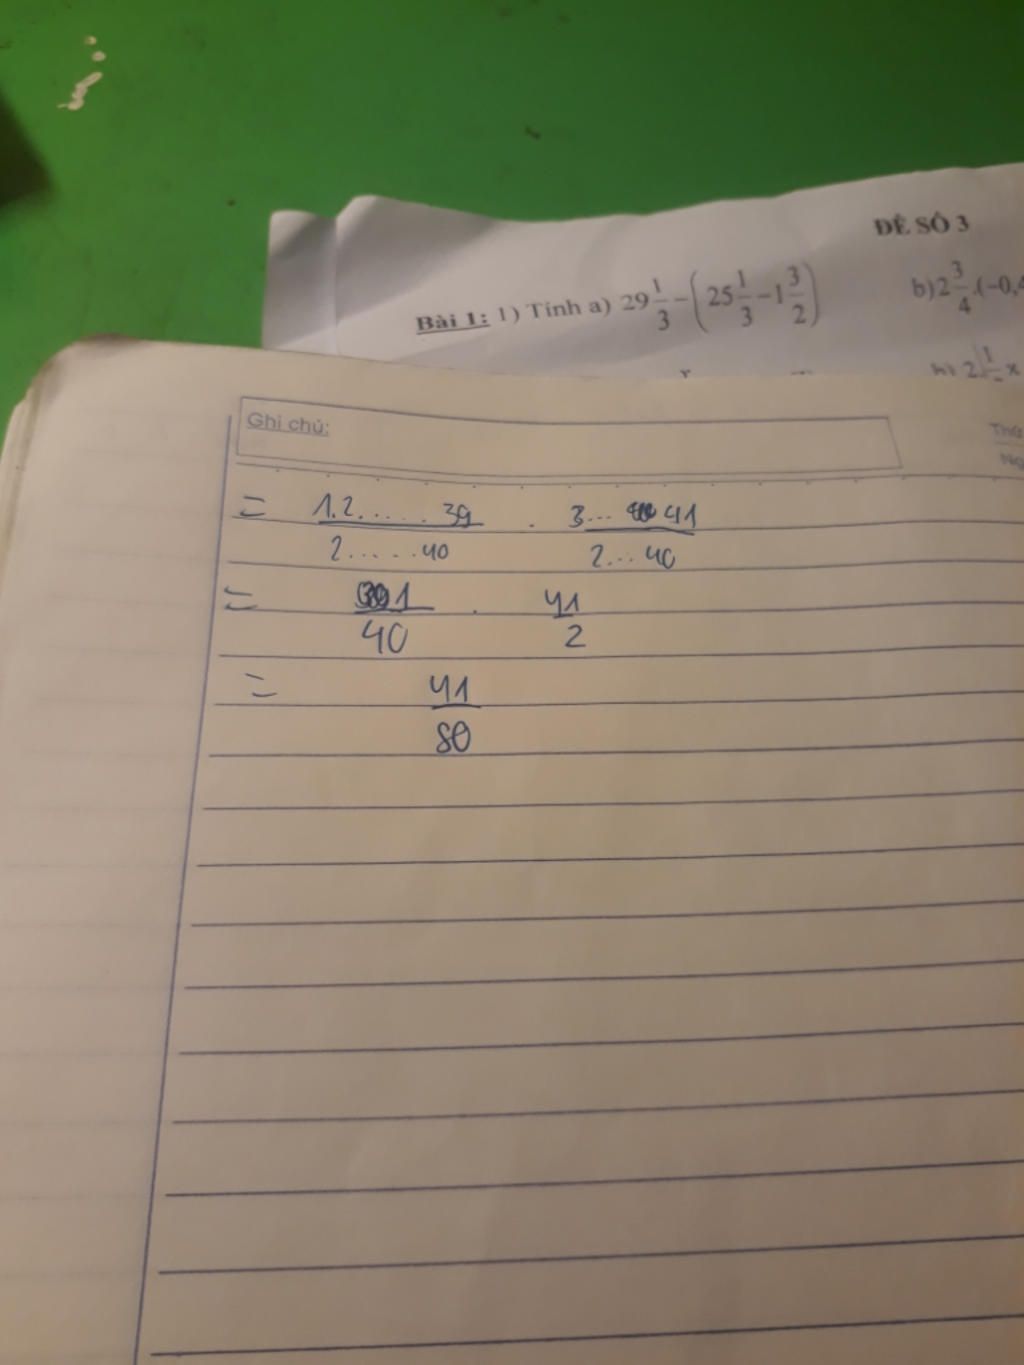 ĐỀ SỐ 3
Bài 1: 1) Tính a) 29 1/3 − (25 1/3 − 1 3/2) b) 2 3/4 .(−0,4
h) 2 1/ x
Ghi chú:
Thứ
Ng
= 1.2.....39 / 2.....40 . 3... 41 / 2...40
= 1/40 . 41/2
= 41/80